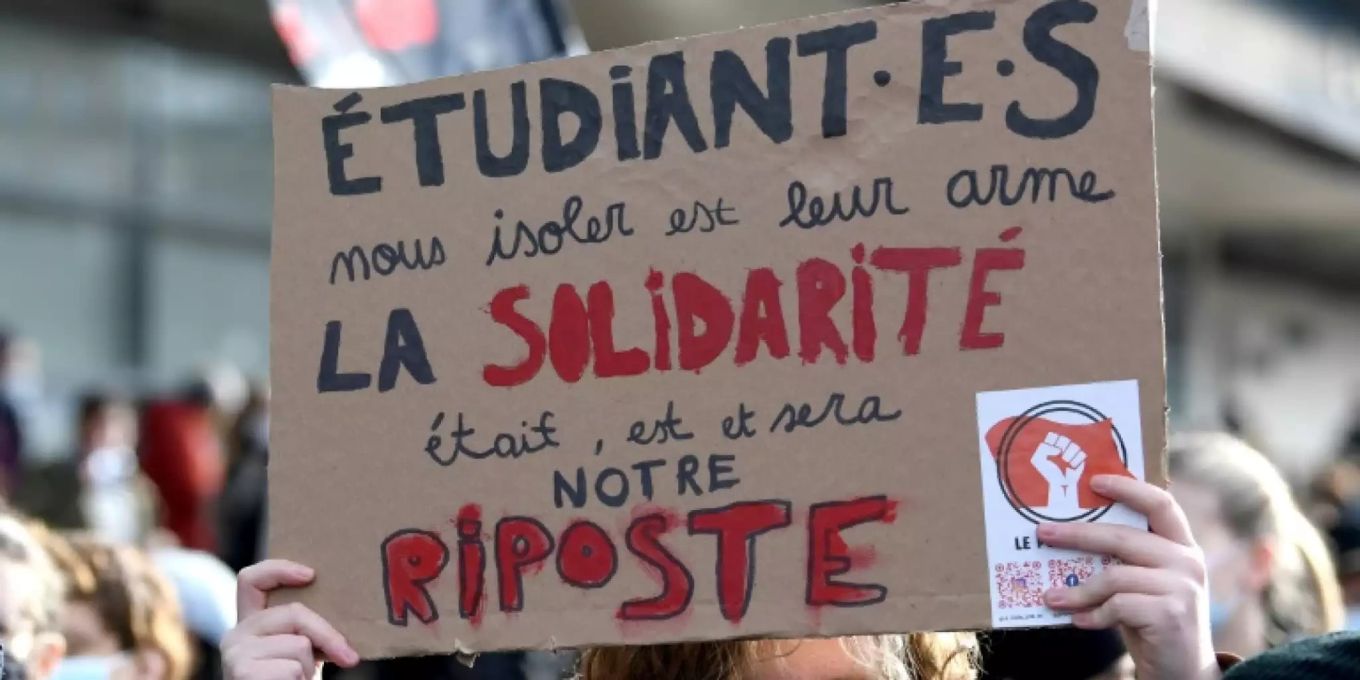 ÉTUDiANT·E·S
nous isoler est leur arme
LA SOLiDARiTÉ
était, est et sera
NOTRE
RiPOSTE
LE